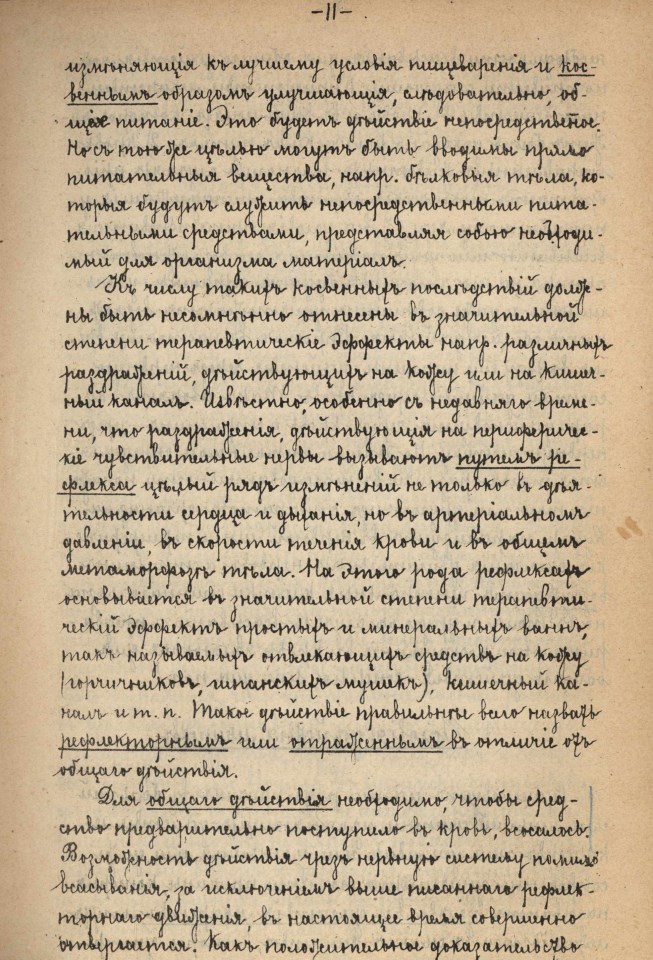 –11–
измѣняющія къ лучшему условія пищеваренія и кос-
веннымъ образомъ улучшающія, слѣдовательно, об-
щее питаніе. Это будетъ дѣйствіе непосредственное.
Но съ тою же цѣлью могутъ быть вводимы прямо
питательныя вещества, напр. бѣлковыя тѣла, ко-
торыя будутъ служить непосредственными пита-
тельными средствами, представляя собою необходи-
мый для организма матеріалъ.
Къ числу такихъ косвенныхъ послѣдствій долж-
ны быть несомнѣнно отнесены въ значительной
степени терапевтическіе эффекты напр. различныхъ
раздраженій, дѣйствующихъ на кожу или на кишеч-
ный каналъ. Извѣстно, особенно съ недавняго време-
ни, что раздраженія, дѣйствующія на периферичес-
кіе чувствительные нервы вызываютъ путемъ ре-
флекса цѣлый рядъ измѣненій не только въ дѣя-
тельности сердца и дыханія, но въ артеріальномъ
давленіи, въ скорости теченія крови и въ общемъ
метаморфозѣ тѣла. На этого рода рефлексахъ
основывается въ значительной степени терапевти-
ческій эффектъ простыхъ и минеральныхъ ваннъ,
такъ называемыхъ отвлекающихъ средствъ на кожу
(горчичниковъ, шпанскихъ мушекъ), кишечный ка-
налъ и т. п. Такое дѣйствіе правильнѣе всего назвать
рефлекторнымъ или отраженнымъ въ отличіе отъ
общаго дѣйствія.
Для общаго дѣйствія необходимо, чтобы сред-
ство предварительно поступило въ кровь, всосалось.
Возможность дѣйствія чрезъ нервную систему помимо
всасыванія, за исключеніемъ выше писаннаго рефлек-
торнаго движенія, въ настоящее время совершенно
отвергается. Какъ положительное доказательство